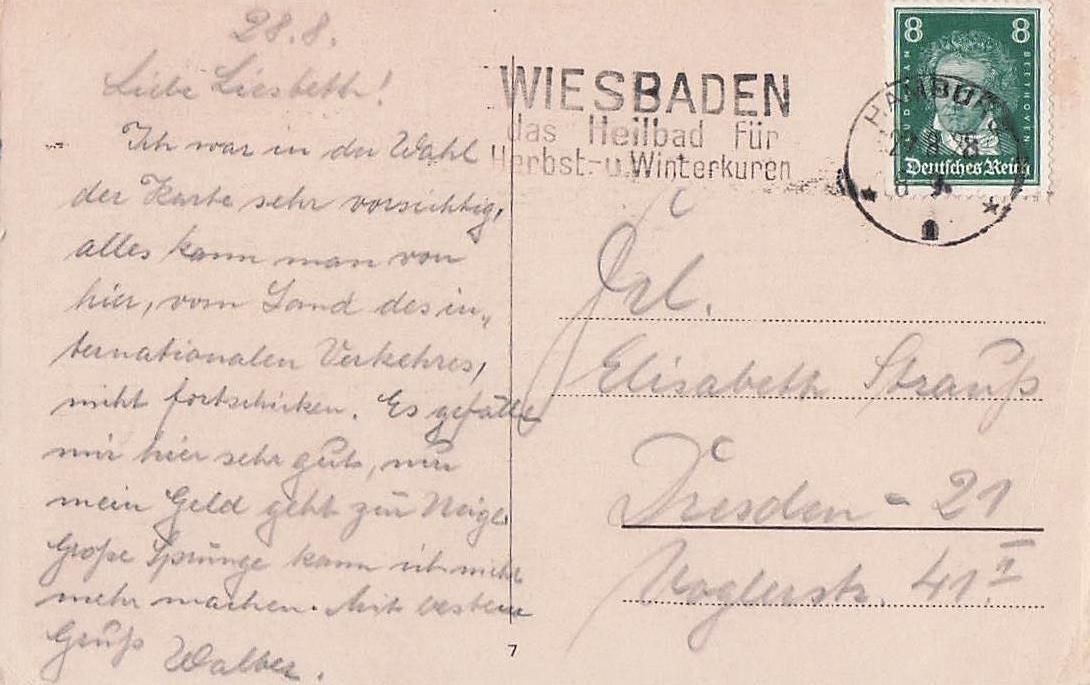 28.8.
Liebe Liesbeth!
Ich war in der Wahl
der Karte sehr vorsichtig,
alles kann man von
hier, vom Land des in„
ternationalen Verkehres,
nicht fortschicken. Es gefällt
mir hier sehr gut, nur
mein Geld geht zur Neige.
Große Sprünge kann ich nicht
mehr machen. Mit bestem
Gruß
WIESBADEN
das Heilbad für
Herbst- u. Winterkuren
8 8
LUDWIG VAN BEETHOVEN
Deutsches Reich
HAMBURG
1
Frl.
Elisabeth Strauß
Dresden - 21
41 II
7